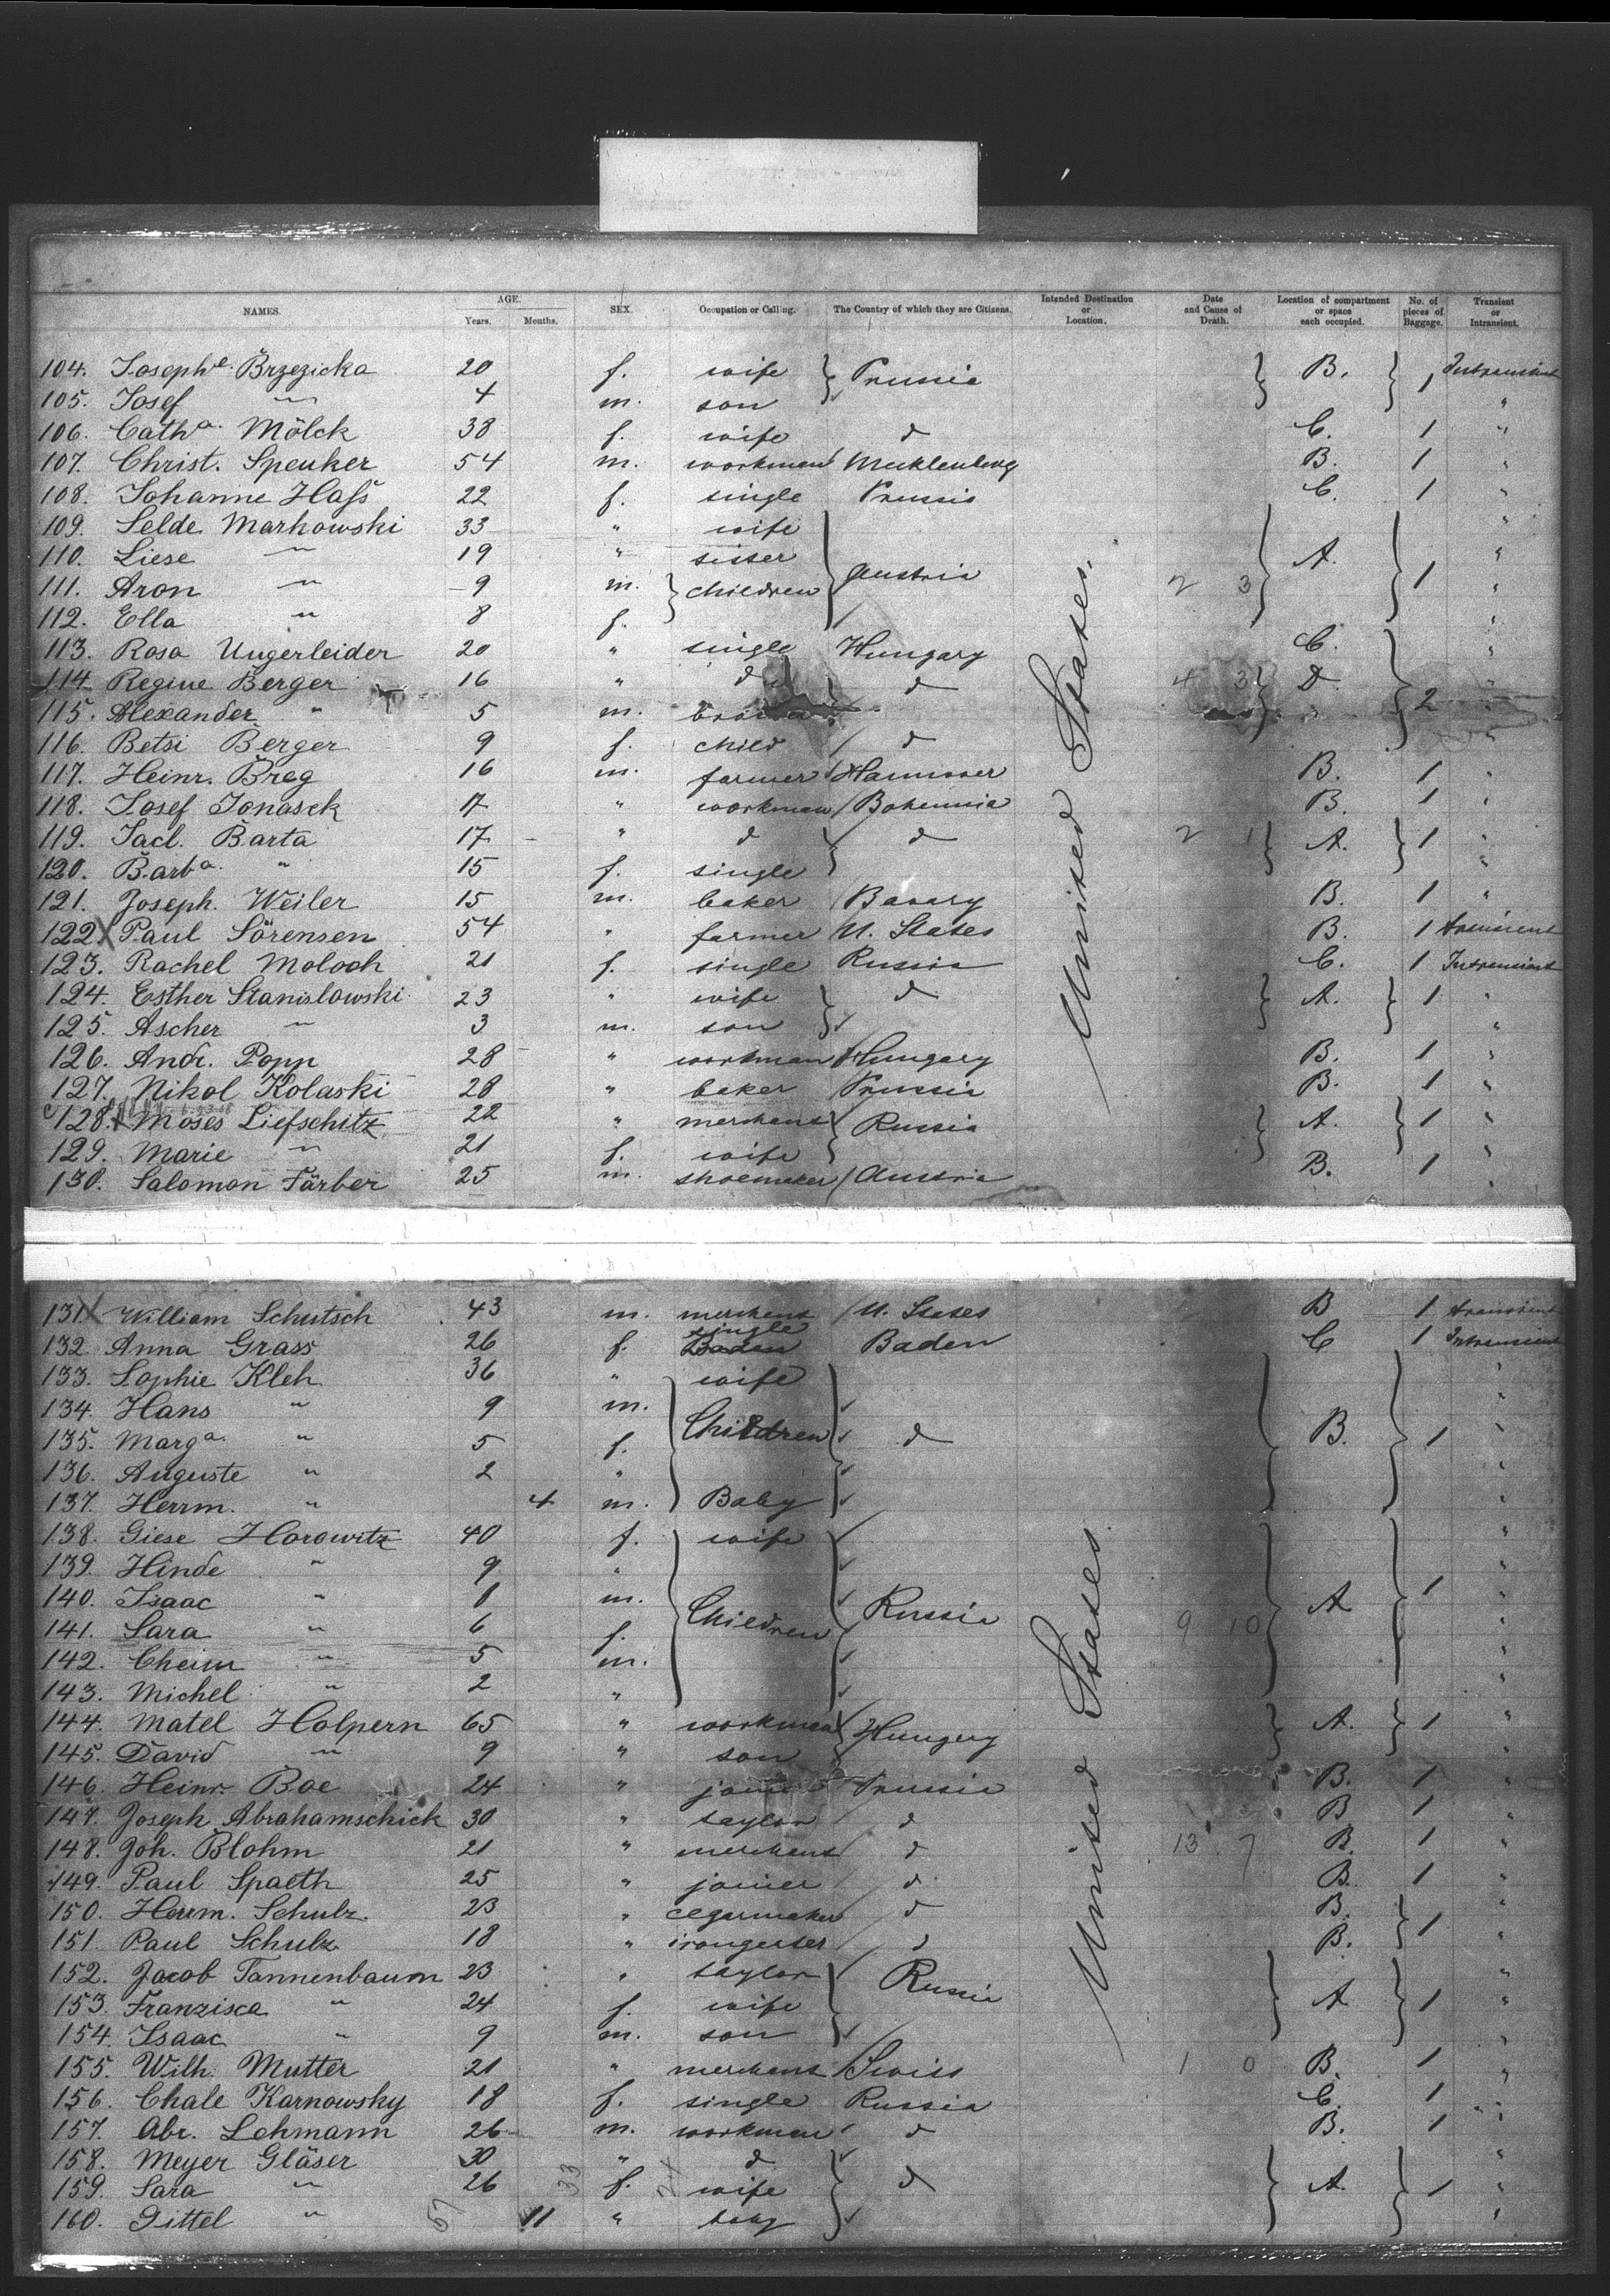 NAMES. AGE. Years. Months. SEX. Occupation or Calling. The Country of which they are Citizens. Intended Destination or Location. Date and Cause of Death. Location of compartment or space each occupied. No. of pieces of Baggage. Transient or Intransient.
104. Josephe. Brzezicka 20 f. wife Prussia B. 1 Intransient
105. Josef " 4 m. son "
106. Catha. Mölck 38 f. wife d C. 1 "
107. Christ. Spenker 54 m. workman Mecklenburg B. 1 "
108. Johanne Hass 22 f. single Prussia C. 1 "
109. Selde Markowski 33 " wife "
110. Liese " 19 " sister Austria A. "
111. Aron " 9 m. children 2 3 1 "
112. Ella " 8 f. "
113. Rosa Ungerleider 20 " single Hungary C. "
114. Regine Berger 16 " d d 4 3 D. "
115. Alexander " 5 m. brother " 2 "
116. Betsi Berger 9 f. child d "
117. Heinr. Breg 16 m. farmer Hannover B. 1 "
118. Josef Jonasek 17 " workman Bohemia B. 1 "
119. Jacl. Barta 17 " d d 2 1 A. 1 "
120. Barba. " 15 f. single "
121. Joseph. Weiler 15 m. baker Bavary B. 1 "
122. X Paul Sörensen 54 " farmer U. States B. 1 transient
123. Rachel Moloch 21 f. single Russia C. 1 Intransient
124. Esther Stanislowski 23 " wife d A. 1 "
125. Ascher " 3 m. son "
126. Andr. Popp 28 " workman Hungary B. 1 "
127. Nikol Kolaski 28 " baker Prussia B. 1 "
128. Moses Liefschitz 22 " merchant Russia A. 1 "
129. Marie " 21 f. wife "
130. Salomon Färber 25 m. shoemaker Austria B. 1 "
United States.
131. X William Schutsch 43 m. merchant U. States B 1 transient
132. Anna Grass 26 f. single Baden Baden C 1 Intransient
133. Sophie Kleh 36 " wife "
134. Hans " 9 m. Children "
135. Marga. " 5 f. d B. 1 "
136. Auguste " 2 " "
137. Herrm. " 4 m. Baby "
138. Giese Horowitz 40 f. wife "
139. Hinde " 9 " "
140. Isaac " 8 m. Children Russia A 1 "
141. Sara " 6 f. 9 10 "
142. Cheim " 5 m. "
143. Michel " 2 " "
144. Matel Holpern 65 " workman Hungery A. 1 "
145. David " 9 " son "
146. Heinr. Boe 24 " joiner Prussia B. 1 "
147. Joseph Abrahamschick 30 " taylor d B 1 "
148. Joh. Blohm 21 " merchant d 13 7 B. 1 "
149. Paul Spaeth 25 " joiner d B. 1 "
150. Herrm. Schulz 23 " cegarmaker d B. "
151. Paul Schulz 18 " d B. 1 "
152. Jacob Tannenbaum 23 " taylor Russia "
153. Franzisca " 24 f. wife A 1 "
154. Isaac " 9 m. son "
155. Wilh. Mutter 21 " merchant Swiss 1 0 B. 1 "
156. Chale Karnowsky 18 f. single Russia C. 1 "
157. Abr. Lehmann 26 m. workman d B. 1 "
158. Meyer Gläser 30 " d "
159. Sara " 26 33 f. 24 wife d A. 1 "
160. Dittel " 57 11 " baby "
United States